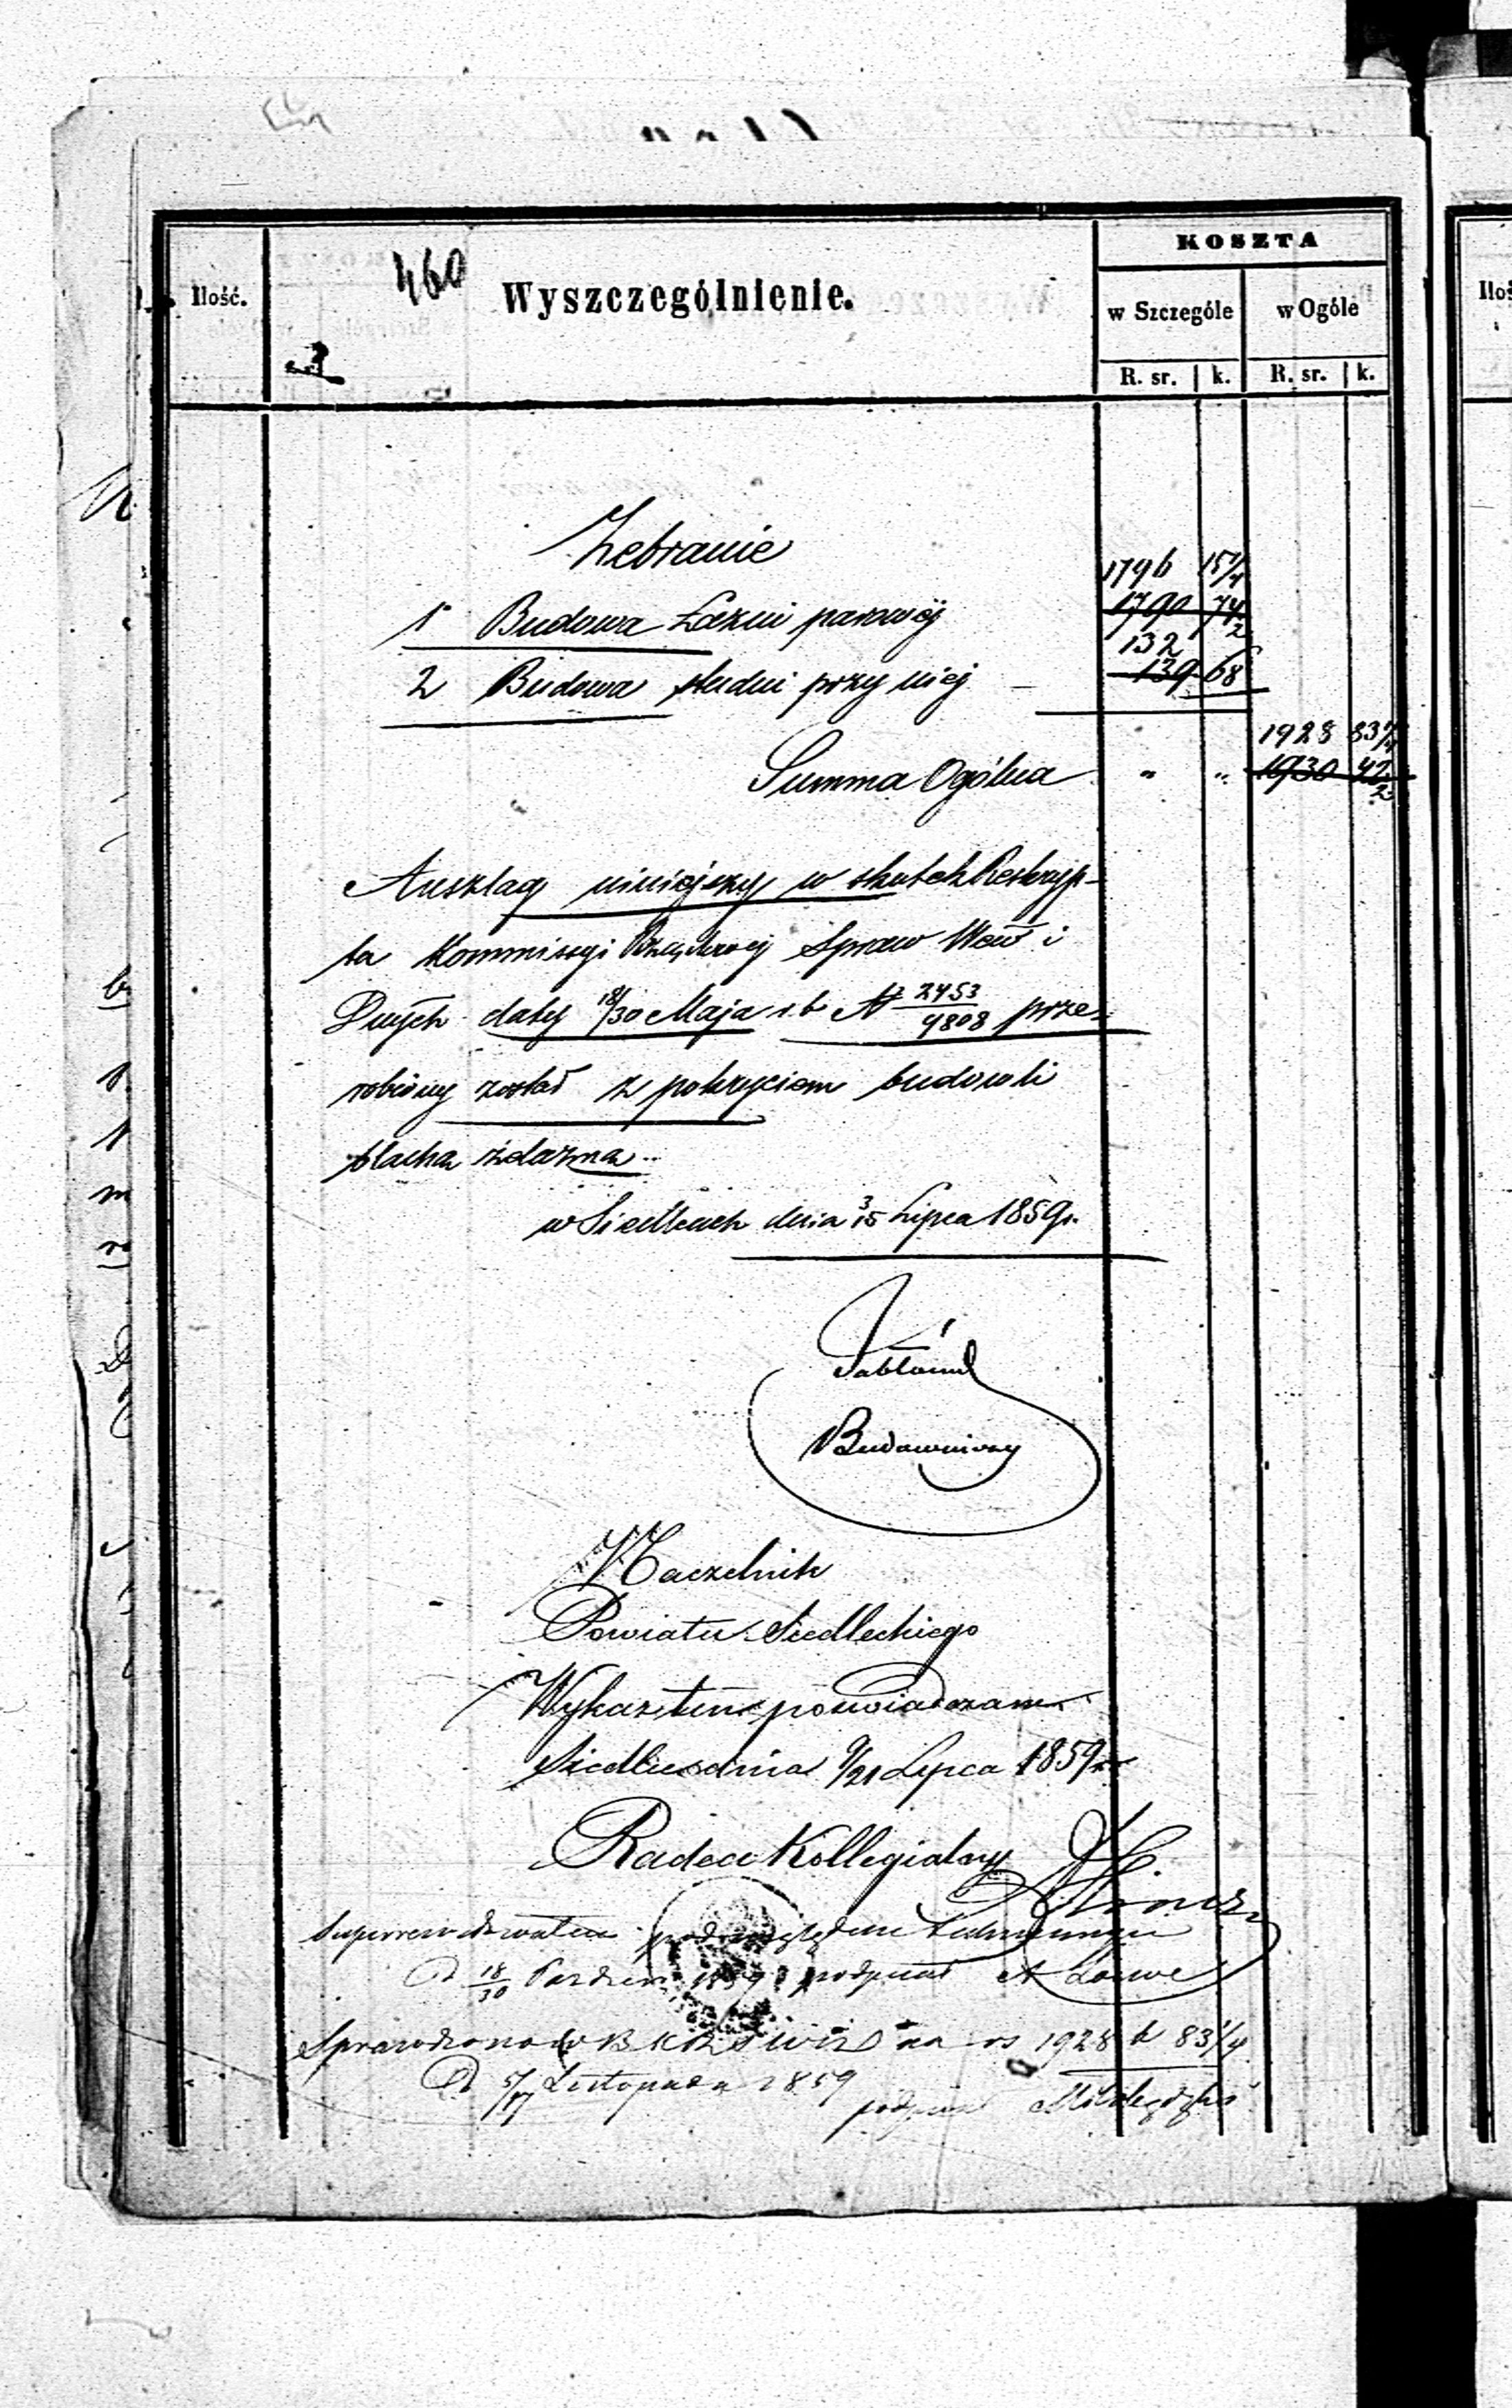 460
Ilość.
Wyszczególnienie.
KOSZTA
w Szczególe
w Ogóle
R. sr. k. R. sr. k.
Zebranie
1796 15 1/4
1 Budowa Łaźni parowéj 1790 74
132
2 Budowa studni przy niéj – 139 68
1928 83 1/4
Summa Ogólna " " 1930 42
Anszlag niniejszy w skutek Reskryp-
tu Kommissyi Rządowéj Spraw Wew i
Dnych daty 18/30 Maja r.b. N 2453/9808 prze-
robiony został z pokryciem budowli
blachą żelazną
w Siedlcach dnia 3/15 Lipca 1859 r.
Budowniczy
Naczelnik
Powiatu Siedleckiego
Wykaz ten poświadczam
Siedlce dnia 9/21 Lipca 1859 r.
Radca Kollegialny
pod względem
D 18/30 Paździer 1859 podpisał A Loewe
Sprawdzono w B K R S W i D na rs 1928 k 83 1/4
D 5/17 Listopada 1859
podpisał